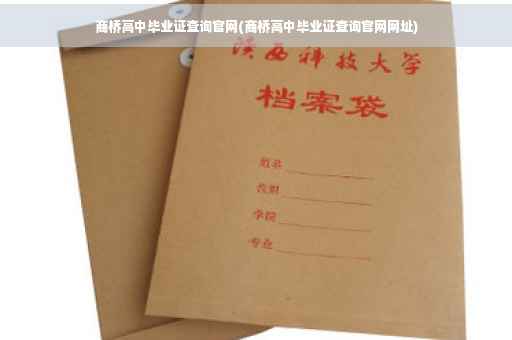 商桥高中毕业证查询官网(商桥高中毕业证查询官网网址)
陕西科技大学
档案袋
姓名
性别
学院
专业